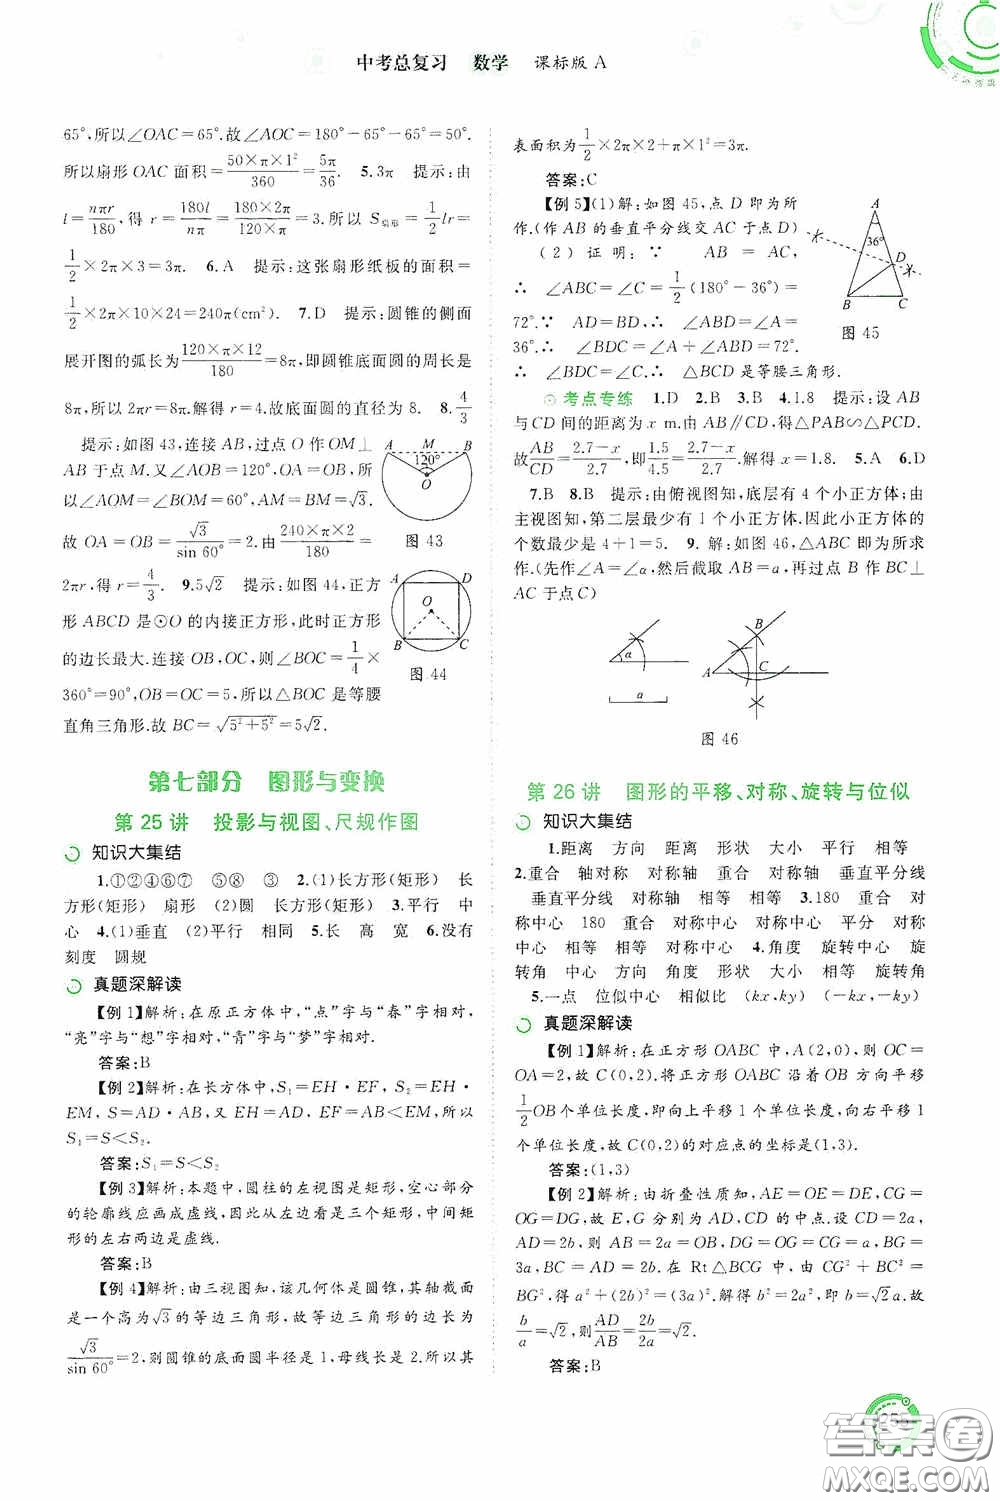 中考总复习 数学 课标版 A
65°,所以∠OAC=65°.故∠AOC=180°-65°-65°=50°.
所以扇形 OAC 面积=50×π×1²/360=5π/36. 5.3π 提示:由
l=nπr/180,得 r=180l/nπ=180×2π/120×π=3.所以 S扇形=1/2 lr=
1/2×2π×3=3π. 6.A 提示:这张扇形纸板的面积=
1/2×2π×10×24=240π(cm²). 7.D 提示:圆锥的侧面
展开图的弧长为120×π×12/180=8π,即圆锥底面圆的周长是
8π,所以 2πr=8π.解得 r=4.故底面圆的直径为 8. 8.4/3
提示:如图 43,连接 AB,过点 O 作 OM⊥
AB 于点 M.又∠AOB=120°,OA=OB,所
以∠AOM=∠BOM=60°,AM=BM=√3.
故 OA=OB=√3/sin 60°=2.由240×π×2/180=
2πr,得 r=4/3. 9.5√2 提示:如图 44,正方
形 ABCD 是⊙O 的内接正方形,此时正方形
的边长最大.连接 OB,OC,则∠BOC=1/4×
360°=90°,OB=OC=5,所以△BOC 是等腰
直角三角形.故 BC=√(5²+5²)=5√2.
A M B
120°
O
图 43
A D
O
B C
图 44
第七部分 图形与变换
第 25 讲 投影与视图、尺规作图
知识大集结
1.①②④⑥⑦ ⑤⑧ ③ 2.(1)长方形(矩形) 长
方形(矩形) 扇形 (2)圆 长方形(矩形) 3.平行 中
心 4.(1)垂直 (2)平行 相同 5.长 高 宽 6.没有
刻度 圆规
真题深解读
【例 1】解析:在原正方体中,“点”字与“春”字相对,
“亮”字与“想”字相对,“青”字与“梦”字相对.
答案:B
【例 2】解析:在长方体中,S₁=EH·EF,S₂=EH·
EM,S=AD·AB,又 EH=AD,EF=AB<EM,所以
S₁=S<S₂.
答案:S₁=S<S₂
【例 3】解析:本题中,圆柱的左视图是矩形,空心部分
的轮廓线应画成虚线,所以从左边看是三个矩形,中间矩
形的左右两边是虚线.
答案:B
【例 4】解析:由三视图知,该几何体是圆锥,其轴截面
是一个高为√3的等边三角形,故等边三角形的边长为
√3/sin 60°=2,则圆锥的底面圆半径是 1,母线长是 2.所以其
表面积为1/2×2π×2+π×1²=3π.
答案:C
【例 5】(1)解:如图 45,点 D 即为所
作.(作 AB 的垂直平分线交 AC 于点 D)
(2)证明:∵ AB=AC,
∴ ∠ABC=∠C=1/2(180°-36°)=
72°.∵ AD=BD,∴ ∠ABD=∠A=
36°.∴ ∠BDC=∠A+∠ABD=72°.
∴ ∠BDC=∠C.∴ △BCD 是等腰三角形.
A
36°
D
B C
图 45
考点专练 1.D 2.B 3.B 4.1.8 提示:设 AB
与 CD 间的距离为 x m.由 AB∥CD,得△PAB∽△PCD.
故AB/CD=2.7-x/2.7,即1.5/4.5=2.7-x/2.7.解得 x=1.8. 5.A 6.D
7.B 8.B 提示:由俯视图知,底层有 4 个小正方体;由
主视图知,第二层最少有 1 个小正方体.因此小正方体的
个数最少是 4+1=5. 9. 解:如图 46,△ABC 即为所求
作.(先作∠A=∠α,然后截取 AB=a,再过点 B 作 BC⊥
AC 于点 C)
α
a
B
A C
图 46
第 26 讲 图形的平移、对称、旋转与位似
知识大集结
1.距离 方向 距离 形状 大小 平行 相等
2.重合 轴对称 对称轴 重合 对称轴 垂直平分线
垂直平分线 对称轴 相等 相等 3.180 重合 对
称中心 180 重合 对称中心 对称中心 平分 对称
中心 相等 相等 对称中心 4.角度 旋转中心 旋
转角 中心 方向 角度 形状 大小 相等 旋转角
5.一点 位似中心 相似比 (kx,ky) (-kx,-ky)
真题深解读
【例 1】解析:在正方形 OABC 中,A(2,0),则 OC=
OA=2,故 C(0,2).将正方形 OABC 沿着 OB 方向平移
1/2OB 个单位长度,即向上平移 1 个单位长度,向右平移 1
个单位长度,故 C(0,2)的对应点的坐标是(1,3).
答案:(1,3)
【例 2】解析:由折叠性质知,AE=OE=DE,CG=
OG=DG,故 E,G 分别为 AD,CD 的中点.设 CD=2a,
AD=2b,则 AB=2a=OB,DG=OG=CG=a,BG=
3a,BC=AD=2b.在 Rt△BCG 中,由 CG²+BC²=
BG²,得 a²+(2b)²=(3a)².解得 b²=2a²,即 b=√2a.故
b/a=√2,则AD/AB=2b/2a=√2.
答案:B
答案圈
MXQE.COM